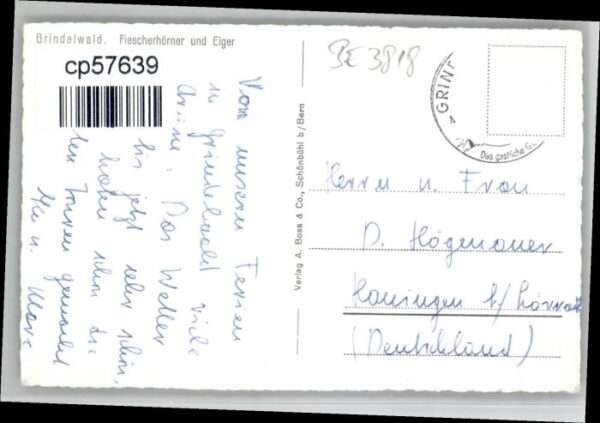 Grindelwald. Fiescherhörner und Eiger
cp57639
BE 3818
GRIN
Das gastliche G
Verlag A. Boss & Co., Schönbühl b/Bern
Von unseren Ferien
in Grindelwald viele
Grüsse. Das Wetter
bis jetzt sehr schön.
haben schon die
Touren gemacht
u.
Herrn u. Frau
D. Högenauer
Hauingen b/Lörrach
(Deutschland)